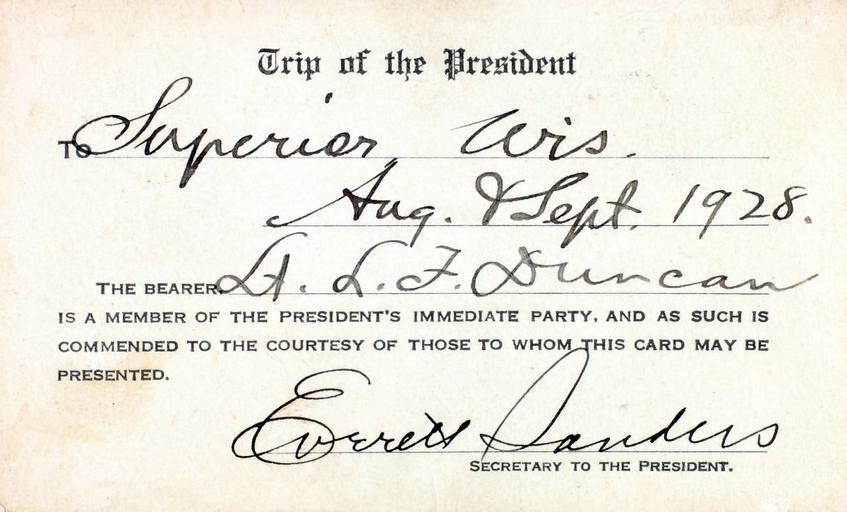 Trip of the President
TO Superior, Wis.
Aug. & Sept. 1928.
THE BEARER, Lt. L. F. Duncan
IS A MEMBER OF THE PRESIDENT'S IMMEDIATE PARTY, AND AS SUCH IS
COMMENDED TO THE COURTESY OF THOSE TO WHOM THIS CARD MAY BE
PRESENTED.
Everett Sanders
SECRETARY TO THE PRESIDENT.